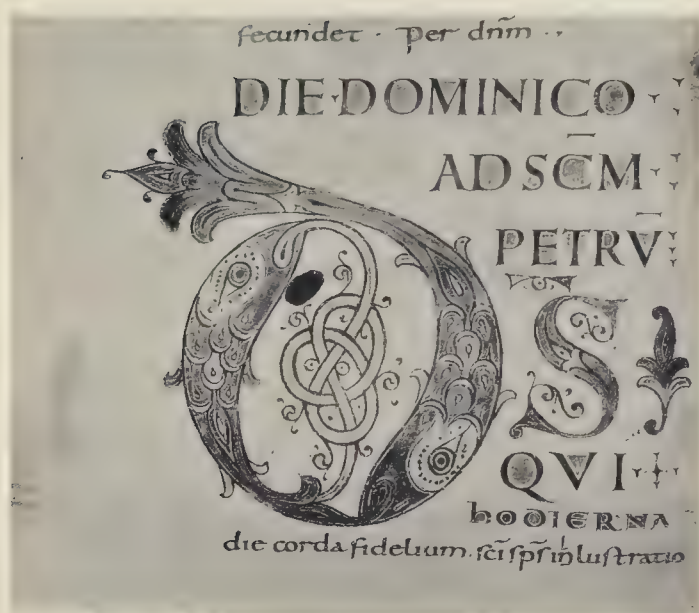 fecundet · per dnm̄ ·,
DIE·DOMINICO
AD SC̄M
PETRV̄
DS
QVI
hodiERNA
die corda fidelium. sc̄i sp̄s inlustratio